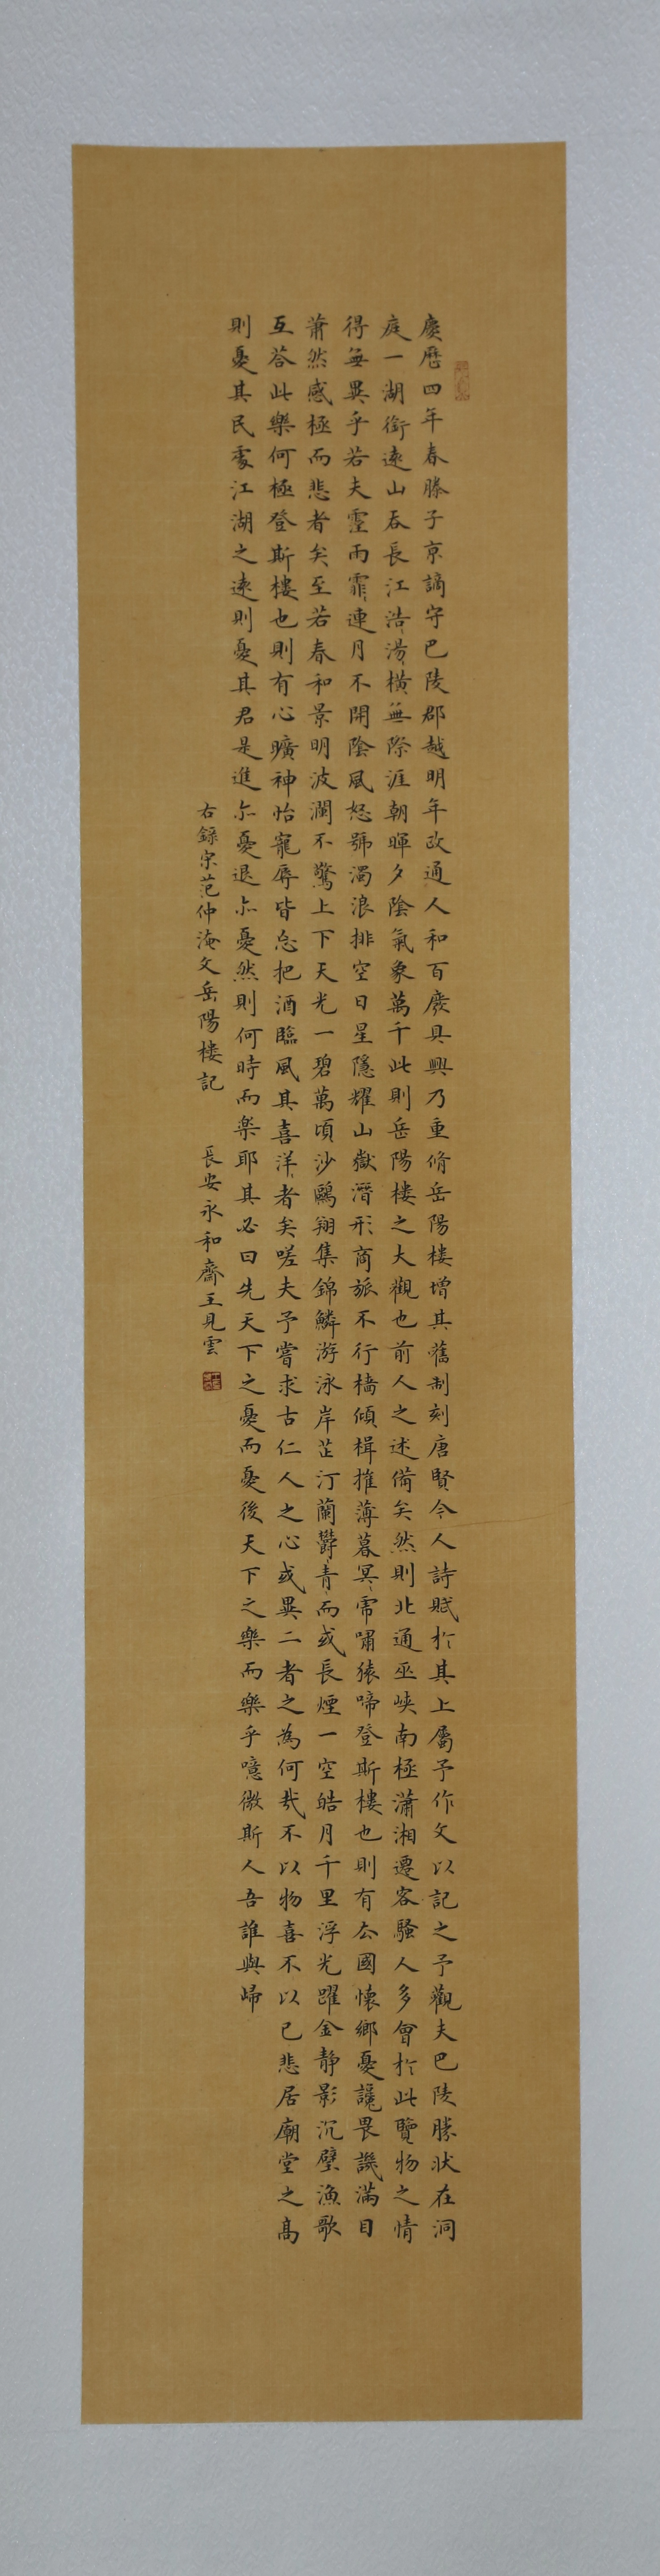 慶歷四年春滕子京謫守巴陵郡越明年政通人和百廢具興乃重脩岳陽樓增其舊制刻唐賢今人詩賦於其上屬予作文以記之予觀夫巴陵勝狀在洞
庭一湖銜遠山吞長江浩湯橫無際涯朝暉夕陰氣象萬千此則岳陽樓之大觀也前人之述備矣然則北通巫峽南極瀟湘遷客騷人多會於此覽物之情
得無異乎若夫霪雨霏連月不開陰風怒號濁浪排空日星隱耀山嶽潛形商旅不行檣傾楫摧薄暮冥虎嘯猿啼登斯樓也則有去國懷鄉憂讒畏譏滿目
蕭然感極而悲者矣至若春和景明波瀾不驚上下天光一碧萬頃沙鷗翔集錦鱗游泳岸芷汀蘭鬱青而或長煙一空皓月千里浮光躍金靜影沉璧漁歌
互荅此樂何極登斯樓也則有心曠神怡寵辱皆忘把酒臨風其喜洋者矣嗟夫予嘗求古仁人之心或異二者之為何哉不以物喜不以己悲居廟堂之高
則憂其民處江湖之遠則憂其君是進亦憂退亦憂然則何時而樂耶其必曰先天下之憂而憂後天下之樂而樂乎噫微斯人吾誰與歸
右錄宋范仲淹文岳陽樓記 長安永和齋王見雲